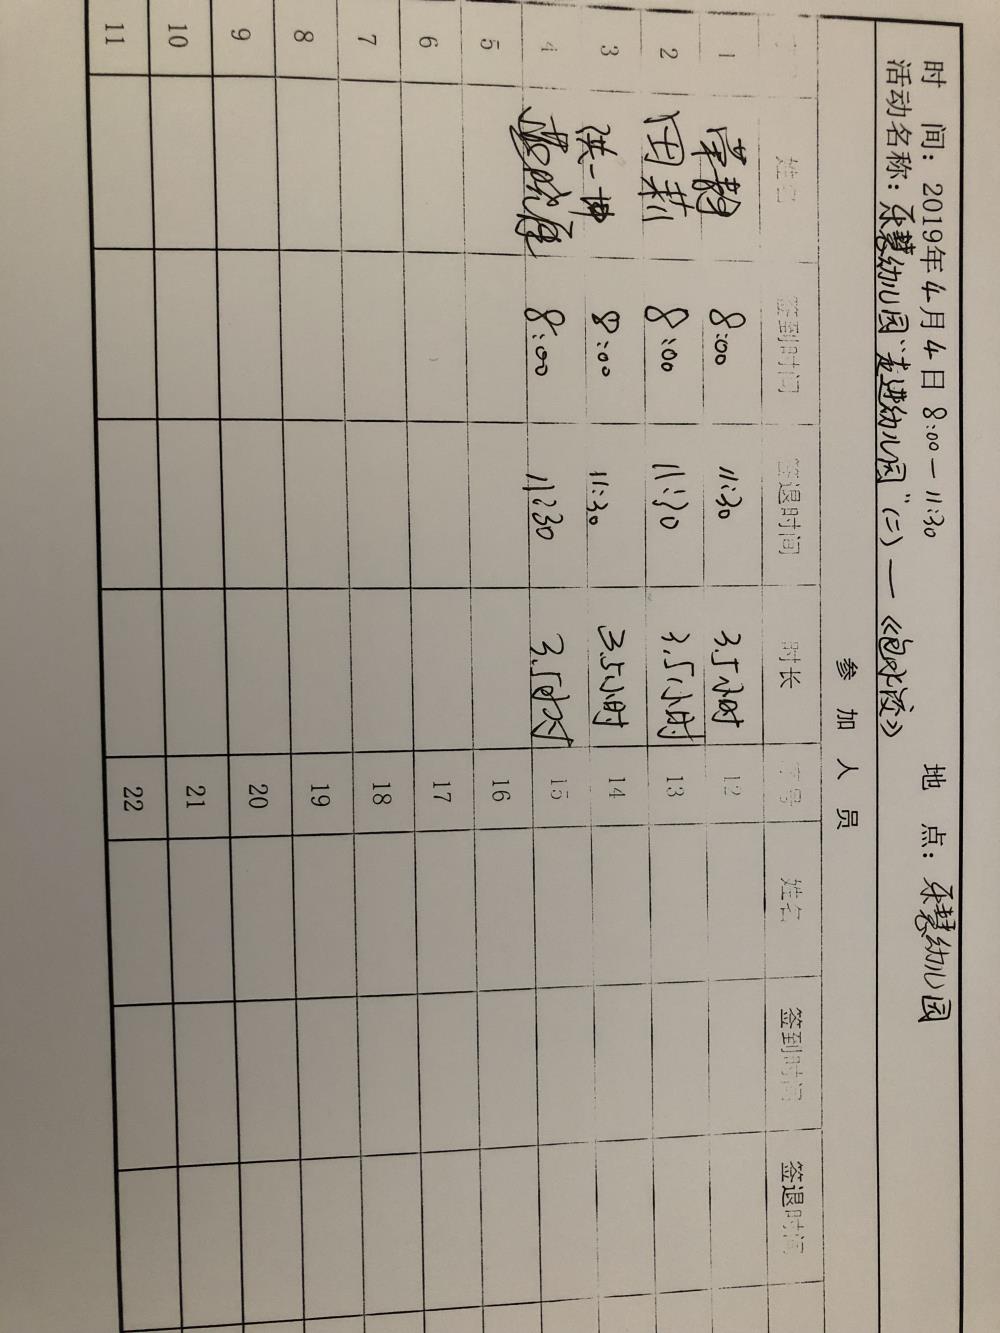 时 间：2019年4月4日 8:00—11:30 地 点：乐慧幼儿园
活动名称：乐慧幼儿园“走进幼儿园”（二）—《泡泡液》
参加人员
姓名 签到时间 签退时间 时长 序号 姓名 签到时间 签退时间
1 8:00 11:30 3.5小时 12
2 田莉 8:00 11:30 3.5小时 13
3 洪一坤 8:00 11:30 3.5小时 14
4 8:00 11:30 3.5小时 15
5 16
6 17
7 18
8 19
9 20
10 21
11 22